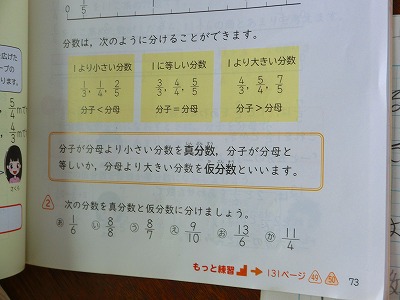 0 1/5
分数は，次のように分けることができます。
1より小さい分数 1に等しい分数 1より大きい分数
1/3，1/4，2/5 3/3，4/4，5/5 4/3，5/4，7/5
分子＜分母 分子＝分母 分子＞分母
分子が分母より小さい分数を真分数，分子が分母と
等しいか，分母より大きい分数を仮分数といいます。
2 次の分数を真分数と仮分数に分けましょう。
あ 1/6 い 8/8 う 8/7 え 9/10 お 13/6 か 11/4
もっと練習 → 131ページ 49 50
73
広げた
ープの
5/4 mで
4/3 mで
さくら